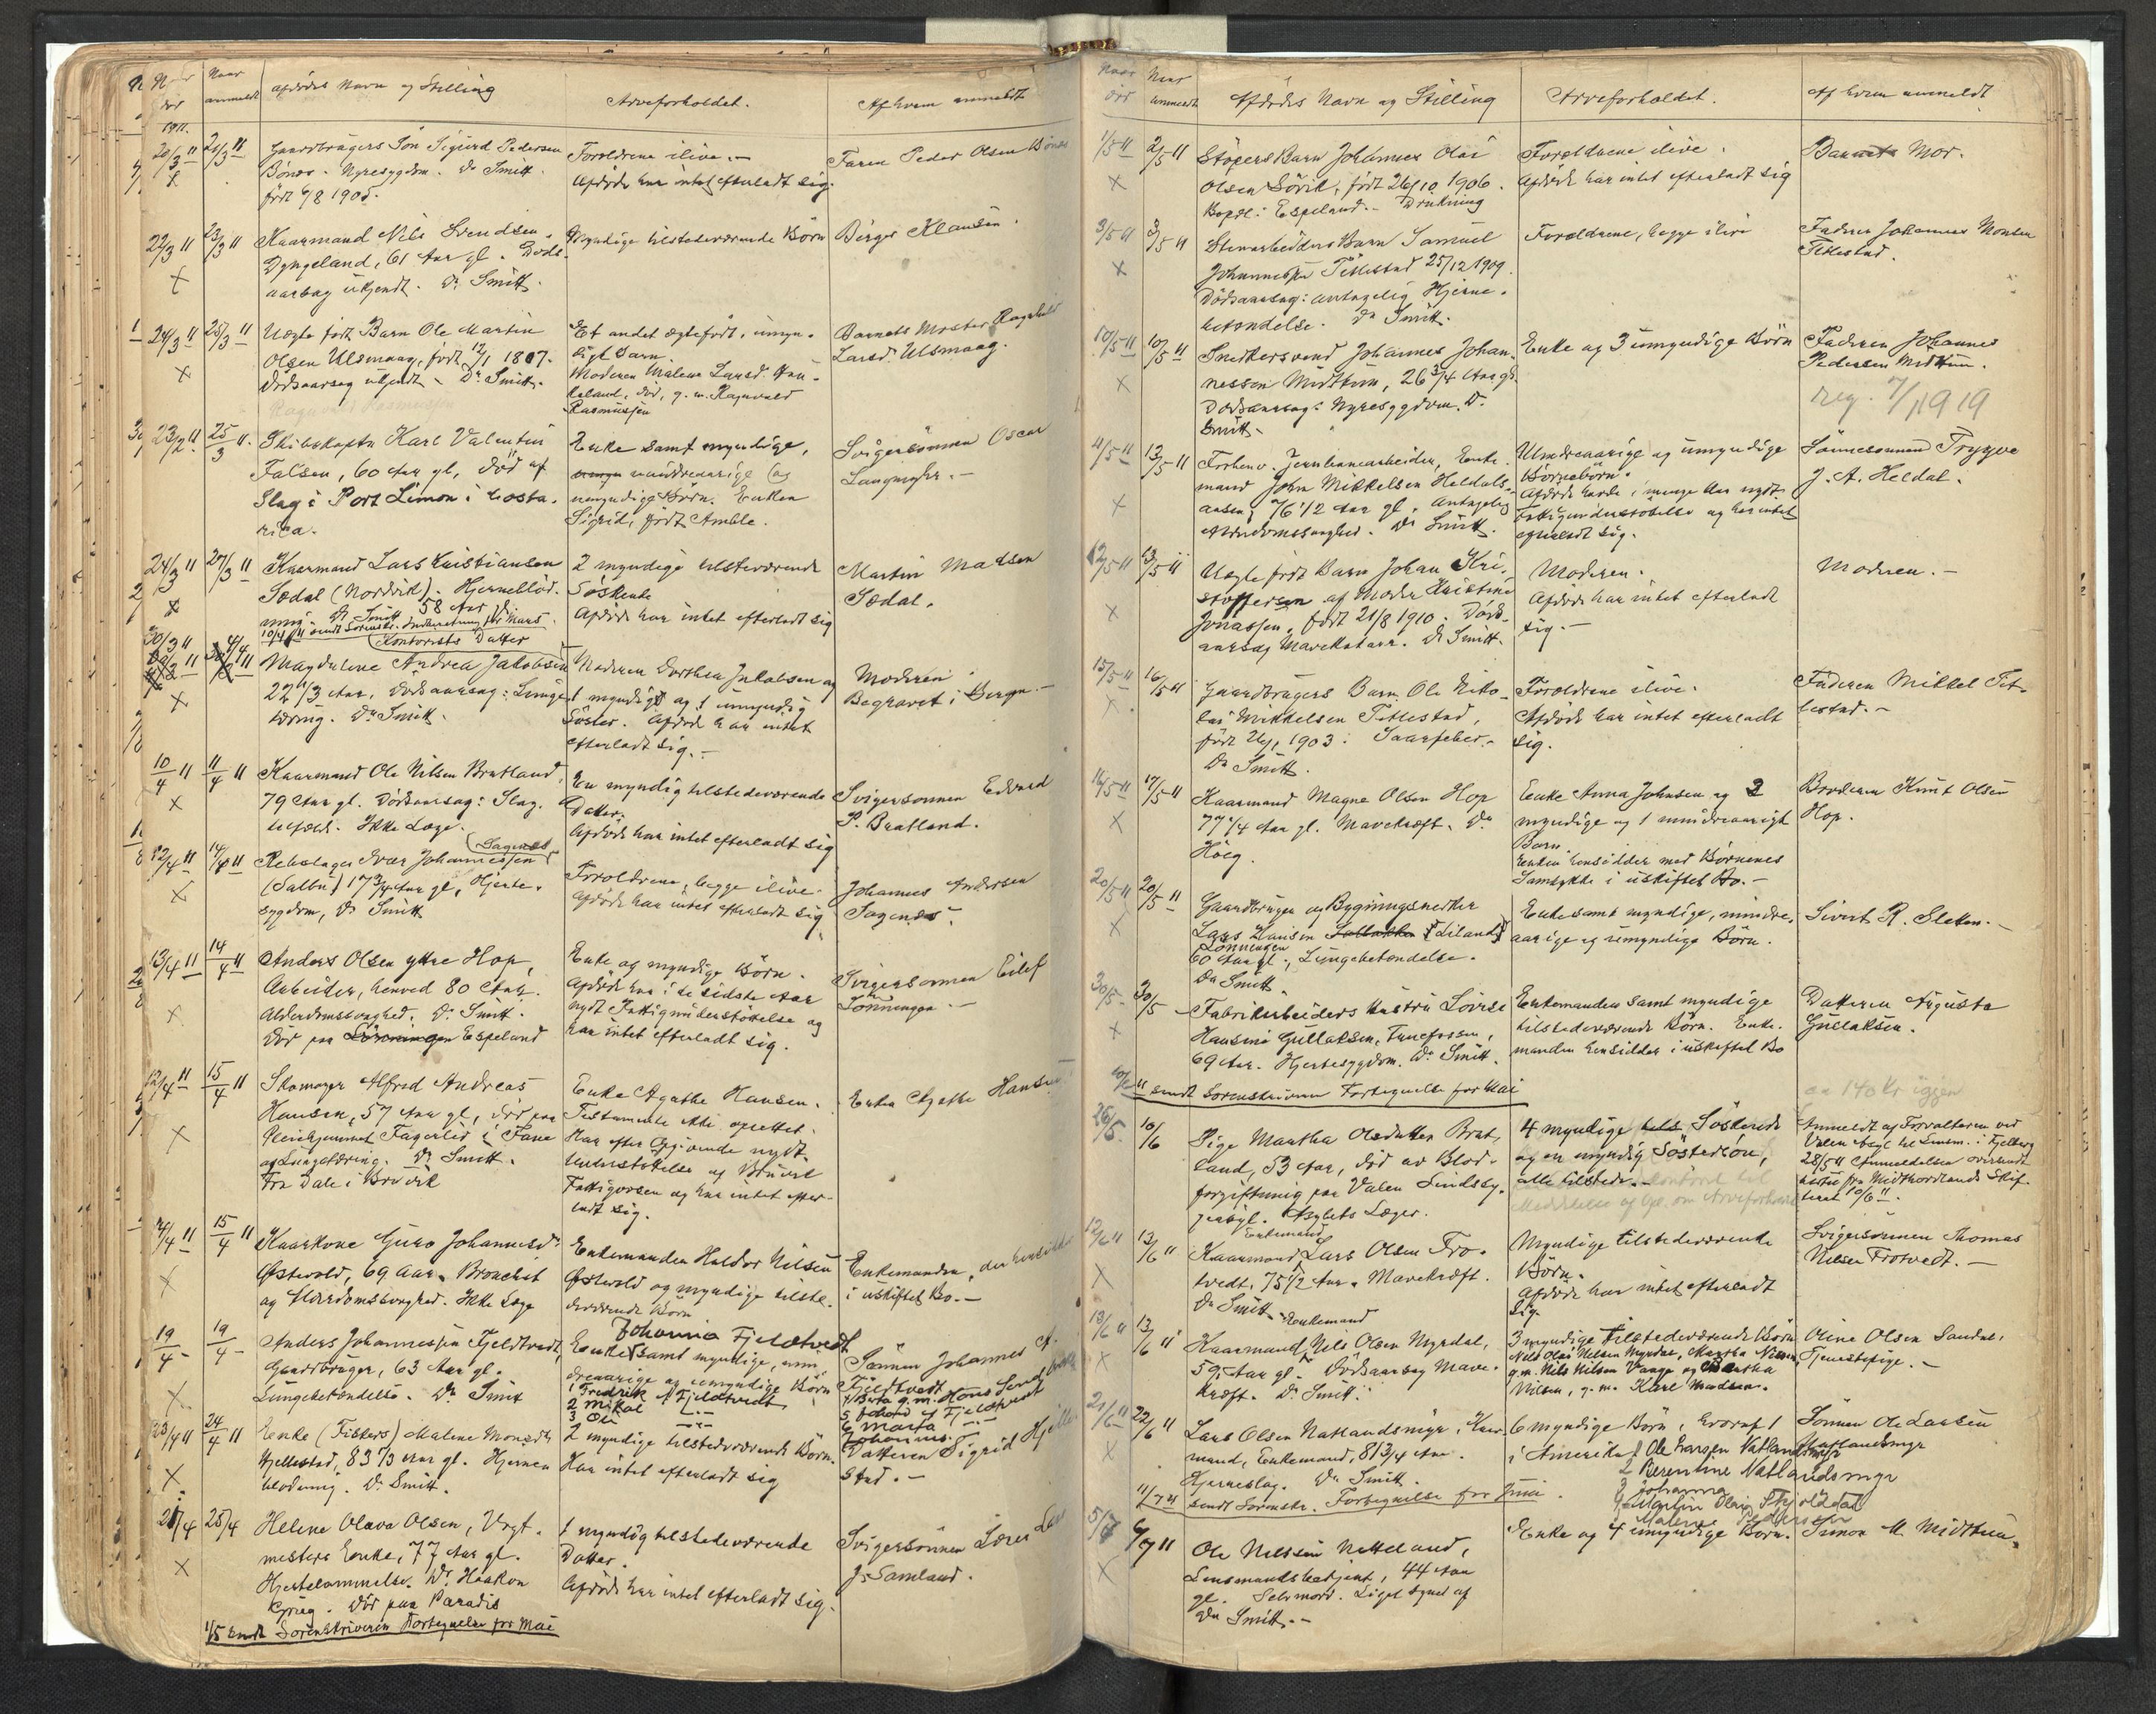 Naar
død
Naar
anmeldt
Afdødes Navn og Stilling
Arveforholdet.
Af hvem anmeldt
1911.
20/3 11
21/3 11
Gaardbrugers Søn Sigurd Pedersen
Bønes. Nyresygdom. Dr Smitt.
født 6/8 1905.
Forældrene ilive.-
Afdøde har intet efterladt sig.
Faren Peder Olsen Bønes
22/3 11
23/3 11
Kaarmand Nils Svendsen
Dyngeland, 61 Aar gl. Døds-
aarsag ukjendt. Dr Smitt.
Myndige tilstedeværende Børn
Birger Klausen.
24/3 11
25/3 11
Uægte født Barn Ole Martin
Olsen Ulsmaag, født 12/1 1807.
Dødsaarsag ukjendt - Dr Smitt.
Et andet ægtefødt, umyn-
digt Barn.
Moderen Malene Larsd.
død, g. m. Ragnvald
Rasmussen
Barnets Moster Ragnhild
Larsd. Ulsmaag.
23/2 11.
25/3 11.
Skibskaptn Karl Valentin
Falsen, 60 Aar gl, død af
Slag i Port Limon i Costa-
rica.
Enke samt myndige,
mindreaarige og
umyndige Børn. Enken
Sigrid, født Amble.
Svigersønnen Oscar
24/3 11
27/3 11
Kaarmand Lars Kristiansen
Sædal (Nordvik). Hjerneblød-
ning. Dr Smitt. 58 Aar
10/4 11 sendt Sorenskr. Indberetning for Mars.
2 myndige tilstedeværende
Søskende
Afdøde har intet efterladt sig
Martin Madsen
Sædal.
30/3 11
4/4 11
Kontorists Datter
Magdalene Andrea Jakobsen
22 1/3 Aar. Dødsaarsag: Lunge-
tæring. Dr Smitt.
Moderen Dorthea Jakobsen og
1 myndig og 1 umyndig
Søster. Afdøde har intet
efterladt sig.-
Moderen
Begravet i Bergen.-
10/4 11
11/4 11
Kaarmand Ole Nilsen Bratland,
79 Aar gl. Dødsaarsag: Slag-
tilfælde. Ikke Læge.
En myndig tilstedeværende
Datter.
Afdøde har intet efterladt sig
Svigersønnen Edvard
P. Bratland.
12/4 11
14/4 11
Rebslager Ivar Johannessen Sagenes
(Salbu) 17 3/4 Aar gl, Hjerte-
sygdom, Dr Smitt
Forældrene, begge ilive.
Afdøde har intet efterladt sig
Johannes Andersen
Sagenes.
13/4 11
14/4 11
Anders Olsen ytre Hop,
Arbeider, henved 80 Aar.
Alderdomssvaghed. Dr Smitt.
Død paa Espeland
Enke og myndige Børn.
Afdøde har i de sidste Aar
nydt Fattigunderstøttelse og
har intet efterladt sig.
Svigersønnen Eilef
Lønningen.-
12/4 11
15/4 11
Skomager Alfred Andreas
Hansen, 57 Aar gl, død paa
Pleiehjemmet Fagerlid i Fane
af Lungetæring. Dr Smitt.
Fra Dale i Bruvik
Enke Agathe Hansen.
Testamente ikke oprettet.
Har efter Opgivende nydt
Understøttelse af Bruvik
Fattigvæsen og har intet efter-
ladt sig.
Enken Agathe Hansen
14/4 11
15/4 11
Kaarkone Guro Johannesd.
Østevold, 69 Aar. Bronchit
og Alderdomssvaghed. Ikke Læge
Enkemanden Haldor Nilsen
Østevold og myndige tilste-
deværende Børn
Enkemanden, der hensidder
i uskiftet Bo.-
19/4
19/4
Anders Johannessen Fjeldtvedt,
Gaardbruger, 63 Aar gl.
Lungebetændelse. Dr Smitt
Johanna Fjeldtvedt
Enke samt myndige, min-
dreaarige og umyndige Børn
1 Fredrik A Fjeldtvedt
2 Mikal
3 Ole
Sønnen Johannes A.
Fjeldtvedt
4 Berta g. m. Hans
5 Johan A Fjeldtvedt
6 Marta
7 Johannes
23/4 11
24/4 11
Enke (Fiskers) Malene Monsdtr
Hjellestad, 83 1/3 Aar gl. Hjerne-
blødning. Dr. Smitt.
2 myndige tilstedeværende Børn.
Har intet efterladt sig
Datteren Sigrid Hjelle-
stad.-
25/4
Helene Olava Olsen, Vegt-
mesters Enke, 77 Aar gl.
Hjertelammelse. Dr. Haakon
Grieg. Død paa Paradis
1 myndig tilstedeværende
Datter.
Afdøde har intet efterladt sig.
Svigersønnen Lærer
J. Samland.
1/5 sendt Sorenskriveren Fortegnelse for Mai
Naar
død
Naar
anmeldt
Afdødes Navn og Stilling
Arveforholdet.
Af hvem anmeldt
1/5 11
2/5 11
Støpers Barn Johannes Olai
Olsen Søvik, født 26/10 1906.
Bopæl: Espeland. - Drukning
Forældrene ilive.
Afdøde har intet efterladt sig
Barnets Mor.
3/5 11
3/5 11
Stenarbeiders Barn Samuel
Johannessen Titlestad 25/12 1909.
Dødsaarsag: antagelig Hjerne-
betændelse. Dr Smitt.
Forældrene, begge ilive
Faderen Johannes Monsen
Titlestad.
10/5 11
10/5 11
Snedkersvend Johannes Johan-
nessen Midttun, 26 3/4 Aar gl.
Dødsaarsag: Nyresygdom. Dr.
Smitt-
Enke og 3 umyndige Børn
Faderen Johannes
Pedersen Midttun.
reg. 7/1 1919
4/5 11
13/5 11
Forhenv. Jernbanearbeider, Enke-
mand John Mikkelsen Heldals-
aasen, 76 1/2 Aar gl. Antagelig
Alderdomssvaghed. Dr Smitt.
Mindreaarige og umyndige
Børnebørn.
Afdøde havde i mange Aar nydt
Fattigunderstøttelse og har intet
efterladt sig.
Sønnesønnen Trygve
J. A. Heldal.
12/5 11
13/5 11
Uægte født Barn Johan Kri-
stoffersen af Moder Kristine
Jonassen, født 21/8 1910. Døds-
aarsag Mavekatarr. Dr Smitt.
Moderen.
Afdøde har intet efterladt
sig.-
Moderen.-
15/5 11
16/5 11
Gaardbrugers Barn Ole Niko-
lai Mikkelsen Titlestad,
født 1903. Skarpfeber.-
Dr Smitt.
Forældrene ilive.
Afdøde har intet efterladt
sig.
Faderen Mikkel Tit-
lestad.-
16/5 11
17/5 11
Kaarmand Magne Olsen Hop
77 1/4 Aar gl. Mavekræft. Dr
Høeg.
Enke Anna Johnsen og 2
myndige og 1 mindreaarigt
Barn.
Enken hensidder med Børnenes
Samtykke i uskiftet Bo.-
Broderen Knut Olsen
Hop.
20/5 11
20/5 11
Gaardbruger og Bygningssnedker
Lars Hansen
Lønningen
60 Aar gl., Lungebetændelse.
Dr Smitt.
Enke samt myndige, mindre-
aarige og umyndige Børn.
Sivert R. Sletten.-
30/5
30/5
Fabrikarbeiders Hustru Lovise
Hansine Gullaksen, Tunefossen,
69 Aar. Hjertesygdom. Dr Smitt.
Enkemanden samt myndige
tilstedeværende Børn. Enke-
manden hensidder i uskiftet Bo
Datteren Augusta
Gullaksen.
10/6 11 sendt Sorenskriveren Fortegnelse for Mai
ca 140 Kr igjen
26/5.
10/6
Pige Martha Olsdatter Brat-
land, 53 Aar, død av Blod-
forgiftning paa Valen Sindssyge-
asyl. Asylets Læger.
4 myndige Søskende
og en myndig Søstersøn,
alle tilstede.-
Anmeldt af Forvalteren ved
Valen Asyl til Lensm. i Fjelberg
28/5 11 Anmeldelsen oversendt
hertil fra Midthordlands Skif-
teret 10/6 11.
12/6 11
13/6 11
Enkemand
Kaarmand Lars Olsen Fro-
tvedt, 75 1/2 Aar. Mavekræft.
Dr Smitt
Myndige tilstedeværende
Børn.
Afdøde har intet efterladt
sig.
Svigersønnen Thomas
Nilsen Frotvedt.-
13/6 11
13/6 11
Enkemand
Kaarmand Nils Olsen Myrdal,
59 Aar gl. Dødsaarsag Mave-
kræft. Dr. Smitt.
3 myndige tilstedeværende Børn
Nils Olai Nilsen Myrdal, Martha Nilsen,
g.m. Nils Nilsen Vaage og Martha
Nilsen, g.m. Karl Madsen.
Oline Olsen Sandal,
Tjenestepige.-
21/6 11
22/6 11
Lars Olsen Natlandsmyr, Kaar-
mand, Enkemand, 81 3/4 Aar.
Hjerneslag. Dr. Smitt.
6 myndige Børn, hvoraf 1
i Amerika 1 Ole Larsen Natlandsmyr
2 Berentine Natlandsmyr
3 Johanna
Sønnen Ole Larsen
Natlandsmyr
11/7 11 sendt Sorenskr. Fortegnelse for Juni.
5/7
6/7 11
Ole Nilssen Natteland,
Lensmandsbetjent, 44 Aar
gl. Selvmord. Liget synet af
Dr Smitt.-
Enke og 4 umyndige Børn.
Simon M. Midttun.